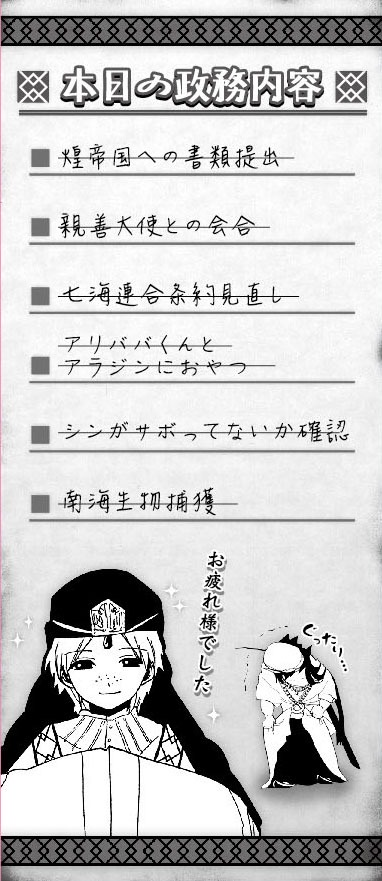 本日の政務内容
煌帝国への書類提出
親善大使との会合
七海連合条約見直し
アリババくんと
アラジンにおやつ
シンがサボってないか確認
南海生物捕獲
お疲れ様でした
ぐったり…